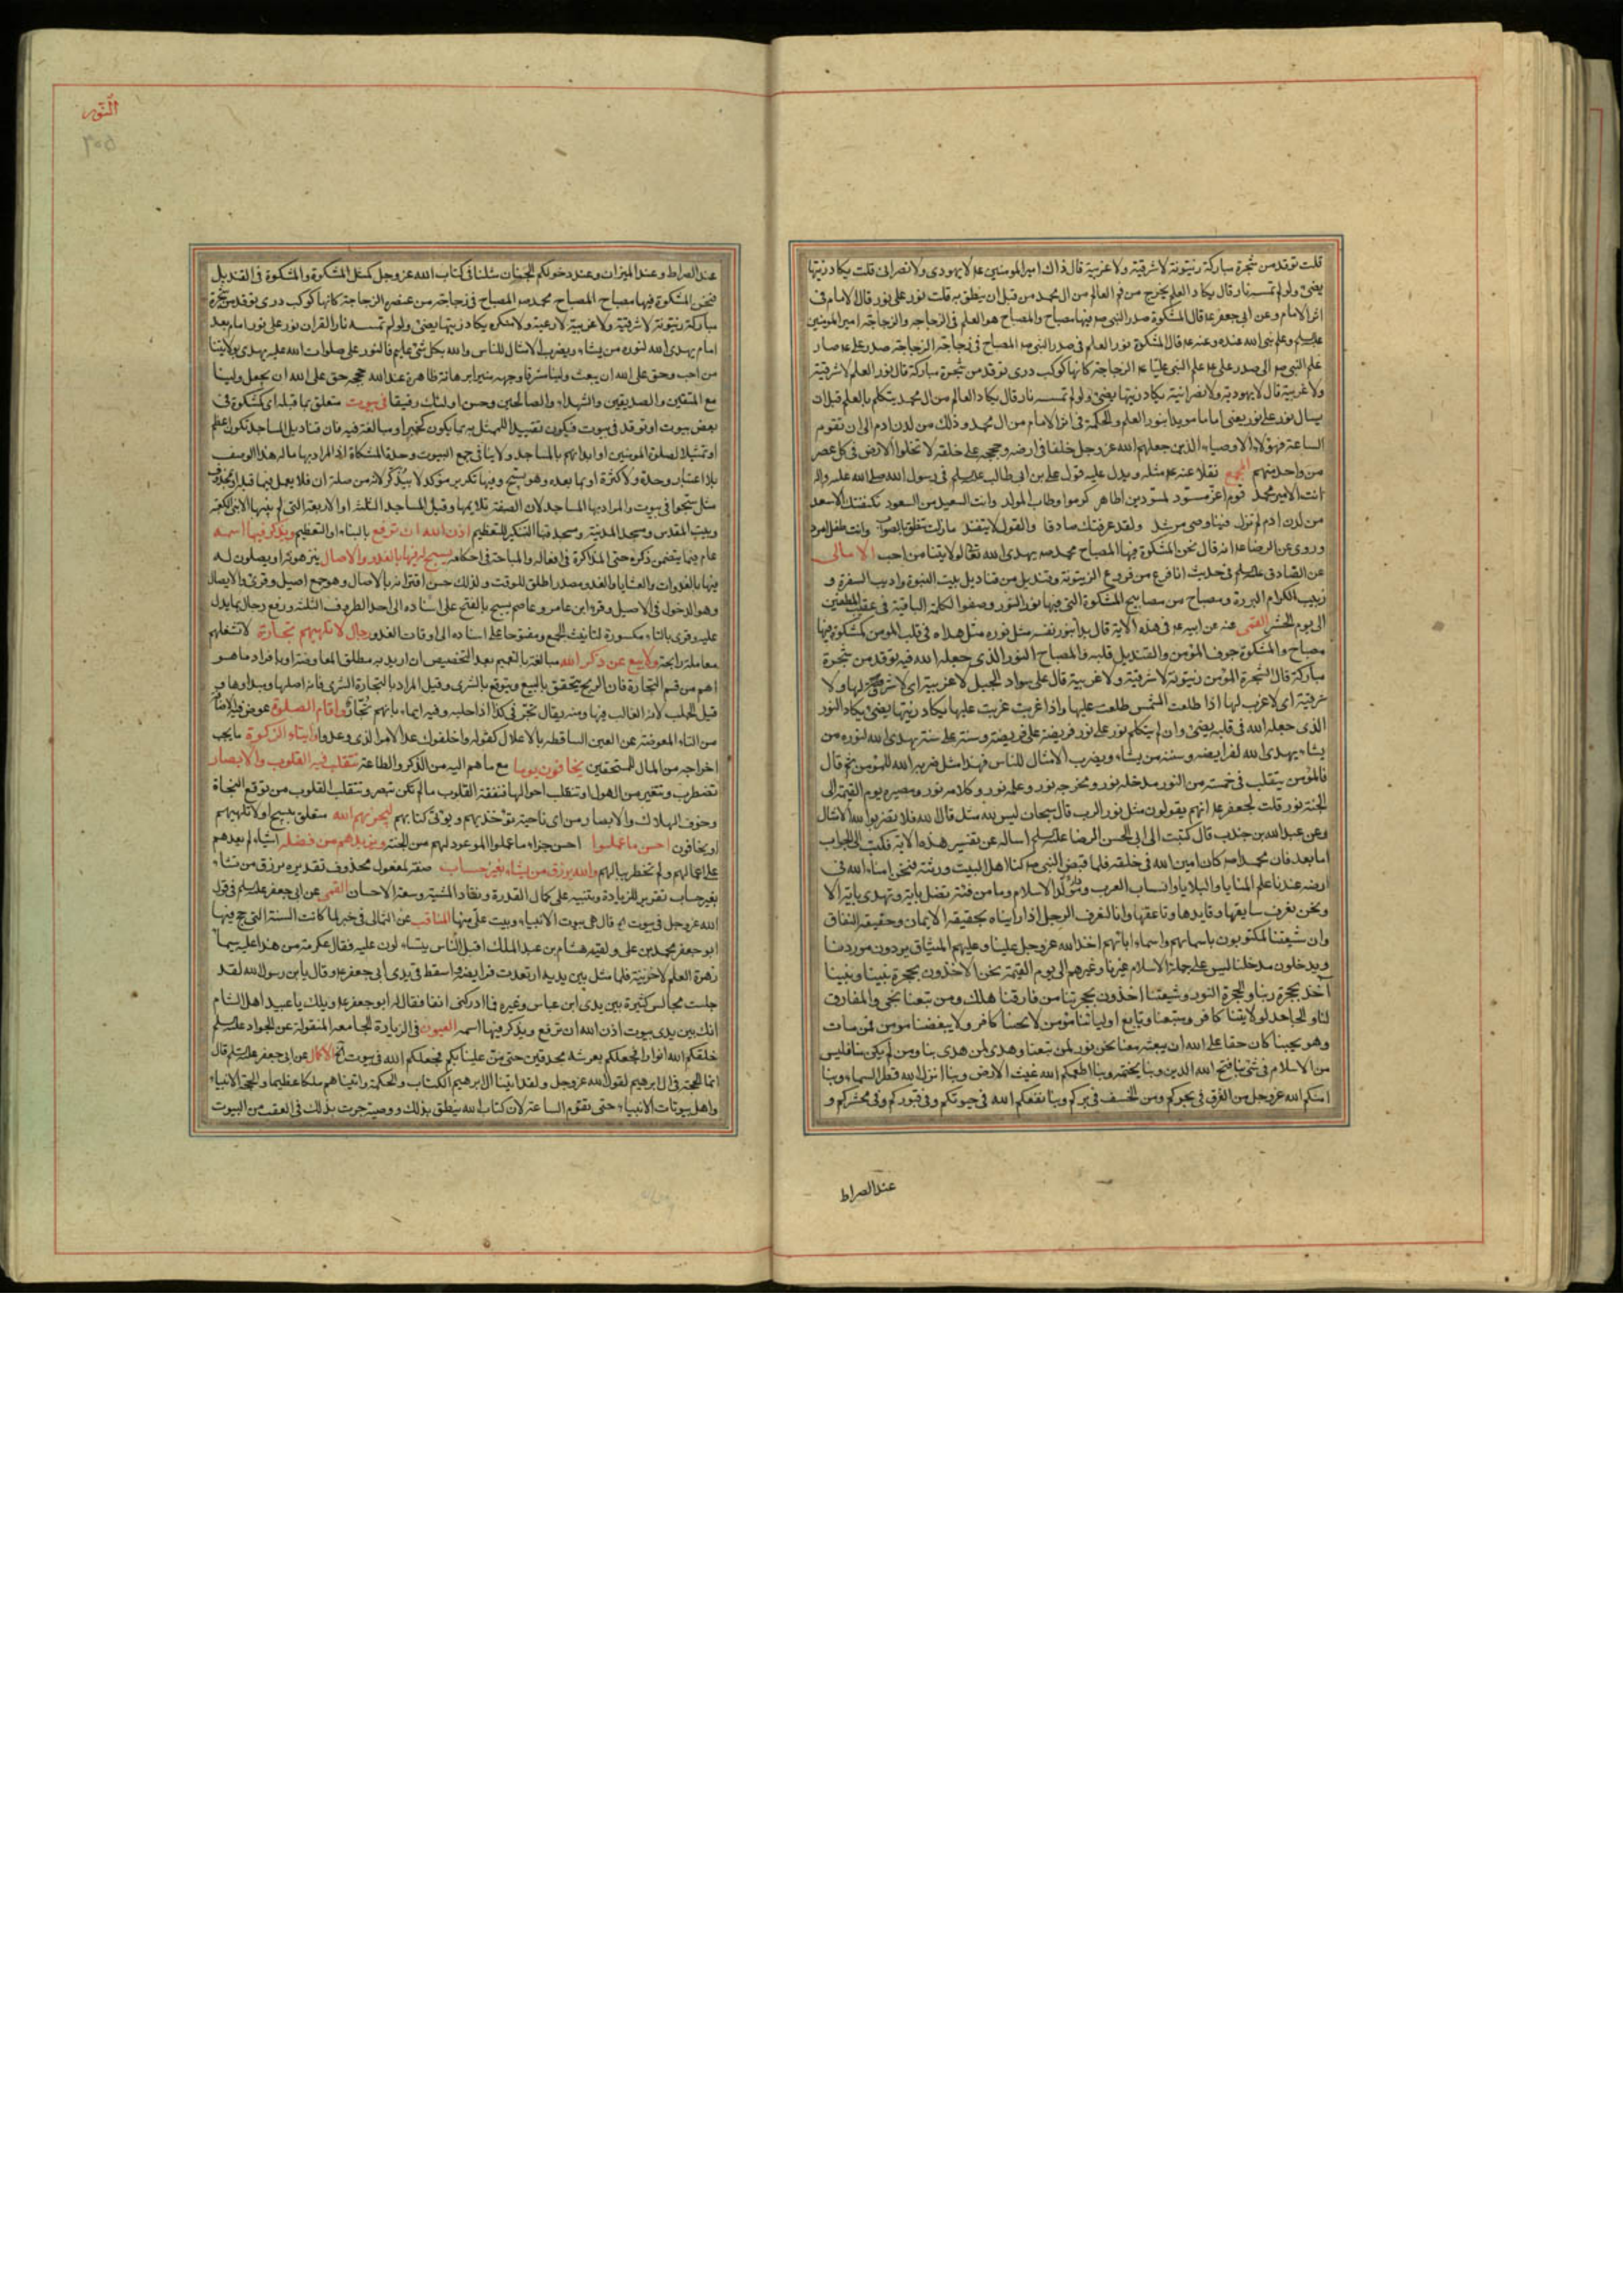 قلت توقد من شجرة مباركة زيتونة لا شرقية ولا غربية قال ذاك امير المومنين عه لا يهودى ولا نصرانى قلت يكاد زيتها
يضئ ولو لم تمسسه نار قال يكاد العلم يخرج من فم العالم من ال محمد من قبل ان ينطق به قلت نور على نور قال الامام فى
اثر الامام وعن ابى جعفر عه قال المشكوة صدر النبى صه فيها مصباح والمصباح هو العلم فى الزجاجه والزجاجة امير المومنين
عليه السلم وعلم نبى الله عنده وعنه عه قال المشكوة نور العلم فى صدر النبى صه المصباح فى زجاجة الزجاجة صدر على عه صار
علم النبى صه الى صدر على عه علم النبى عليا عه الزجاجة كانها كوكب درى توقد من شجرة مباركة قال نور العلم لا شرقية
ولا غربية قال لا يهودية ولا نصرانية يكاد زيتها يضئ ولو لم تمسسه نار قال يكاد العالم من ال محمد يتكلم بالعلم قبل ان
يسال نور على نور يعنى اماما مويدا بنور العلم والحكمة فى اثر الامام من ال محمد وذلك من لدن ادم الى ان تقوم
الساعة فهؤلاء الاوصياء الذين جعلهم الله عز وجل خلفا فى ارضه وحججه على خلقه لا تخلوا الارض فى كل عصر
من واحد منهم المجمع نقلا عنه عه مثله ويدل عليه قول على بن ابى طالب عليه السلم فى رسول الله صلى الله عليه واله
انت الامين محمد قوم اغر مسود لمسودين اطاهر كرموا وطاب المولد وانت السعيد من السعود تكنفتك الاسعد
من لدن ادم لم تزل فينا وصى مرشد ولقد عرفتك صادقا والقول لا يتفند ما زلت تنطق بالصواب وانت طفل امرد
وروى عن الرضا عه انه قال نحن المشكوة فيها المصباح محمد صه يهدى الله تعالى لولايتنا من احب الامالى
عن الصادق عليه السلم فى حديث انا فرع من فروع الزيتونة وقنديل من قناديل بيت النبوة واديب السفرة و
ربيب الكرام البررة ومصباح من مصابيح المشكوة التى فيها نور النور وصفوا لكلمة الباقية فى عقب المصطفين
الى يوم الحشر القمى عنه عن ابيه عه فى هذه الاية قال بدا بنور نفسه مثل نوره مثل هداه فى قلب المومن كمشكوة فيها
مصباح والمشكوة جوف المؤمن والقنديل قلبه والمصباح النور الذى جعله الله فيه توقد من شجرة
مباركة قال الشجرة المؤمن زيتونة لا شرقية ولا غربية قال على سواد الجبل لا غربية اى لا شرق لها ولا
شرقية اى لا غرب لها اذا طلعت الشمس طلعت عليها واذا غربت غربت عليها يكاد زيتها يضئ يكاد النور
الذى جعله الله فى قلبه يضئ وان لم يتكلم نور على نور فريضة على فريضة وسنة على سنة يهدى الله لنوره من
يشاء يهدى الله لفرايضه وسننه من يشاء ويضرب الامثال للناس فهذا مثل ضربه الله للمؤمن ثم قال
فالمؤمن يتقلب فى خمسة من النور مدخله نور ومخرجه نور وعلمه نور وكلامه نور ومصيره يوم القيمة الى
الجنة نور قلت لجعفر عه انهم يقولون مثل نور الرب قال سبحان ليس لله مثل قال الله فلا تضربوا لله الامثال
وعن عبد الله بن جندب قال كتبت الى ابى الحسن الرضا عليه السلم اساله عن تفسير هذه الاية فكتب الى الجواب
اما بعد فان محمدا صه كان امين الله فى خلقه فلما قبض النبى صه كنا اهل البيت ورثته فنحن امناء الله فى
ارضه عندنا علم المنايا والبلايا وانساب العرب ومولد الاسلام وما من فئة تضل باية وتهدى باية الا
ونحن نعرف سايقها وقايدها وناعقها وانا لنعرف الرجل اذا رايناه بحقيقة الايمان وحقيقة النفاق
وان شيعتنا لمكتوبون باسمائهم واسماء ابائهم اخذ الله عز وجل علينا وعليهم الميثاق يردون موردنا
ويدخلون مدخلنا ليس على جملة الاسلام غيرنا وغيرهم الى يوم القيمة نحن الاخذون بحجزة نبينا ونبينا
آخذ بحجزة ربنا والحجزة النور وشيعتنا اخذون بحجزتنا من فارقنا هلك ومن تبعنا نجى والمفارق
لنا والجاحد لولايتنا كافر ومتبعنا وتابع اوليائنا مؤمن لا يحبنا كافر ولا يبغضنا مؤمن فمن مات
وهو يحبنا كان حقا على الله ان يبعثه معنا نحن نور لمن تبعنا وهدى لمن هدى بنا ومن لم يكن منا فليس
من الاسلام فى شئ بنا فتح الله الدين وبنا يختمه وبنا اطعمكم الله غيث الارض وبنا انزل الله قطر السماء وبنا
امنكم الله عز وجل من الغرق فى بحركم ومن الخسف فى بركم وبنا نفعكم الله فى حيوتكم وفى قبوركم وفى محشركم و
عند الصراط
النّور
٥٠٦
عند الصراط وعند الميزان وعند دخولكم الجنان مثلنا فى كتاب الله عز وجل كمثل المشكوة والمشكوة فى القنديل
فنحن المشكوة فيها مصباح المصباح محمد صه المصباح فى زجاجة من عنصره الزجاجة كانها كوكب درى توقد من شجرة
مباركة زيتونة لا شرقية ولا غربية لا دعية ولا منكره يكاد زيتها يضئ ولو لم تمسسه نار القران نور على نور امام بعد
امام يهدى الله لنوره من يشاء ويضرب الامثال للناس والله بكل شئ عليم فالنور على صلوات الله عليه يهدى لولايتنا
من احب وحق على الله ان يبعث ولينا مشرقا وجهه منيرا برهانه ظاهرة عند الله حجته حق على الله ان يجعل ولينا
مع المتقين والصديقين والشهداء والصالحين وحسن اولئك رفيقا فى بيوت متعلق بما قبله اى كمشكوة فى
بعض بيوت او توقد فى بيوت فيكون تقييدا للممثل به بما يكون تحبيرا ومبالغة فيه فان قناديل المساجد تكون اعظم
او تمثيلا لصلوة المومنين او ابدانهم بالمساجد ولا ينافى جمع البيوت وحدة المشكاة اذ المراد بها ما له هذا الوصف
بلا اعتبار وحدة ولا كثرة او بما بعده وهو يسبح وفيها تكرير مؤكد لا بيذكر لانه من صلة ان فلا يعمل فيما قبله او بمحذوف
مثل سبحوا فى بيوت والمراد بها المساجد لان الصفة تلايمها وقيل المساجد الثلثة او الاربعة التى لم يبنها الا نبى الكعبة
وبيت المقدس ومسجد المدينة ومسجد قبا والتنكير للتعظيم اذن الله ان ترفع بالبناء او التعظيم ويذكر فيها اسمه
عام فيما يتضمن ذكره حتى المذاكرة فى افعاله والمباحثة فى احكامه يسبح له فيها بالغدو والاصال ينزهونه او يصلون له
فيها بالغدوات والعشايا والغدو مصدر اطلق للوقت ولذلك حسن اقترانه بالاصال وهو جمع اصيل وقرئ والايصال
وهو الدخول فى الاصيل وقرء ابن عامر وعاصم يسبح بالفتح على اسناده الى احد الظروف الثلثة ورفع رجال بما يدل
عليه وقرئ بالتاء مكسورة لتانيث الجمع ومفتوحا على اسناده الى اوقات الغدو رجال لا تلهيهم تجارة لا تشغلهم
معاملة رابحة ولا بيع عن ذكر الله مبالغة بالتعميم بعد التخصيص ان اريد به مطلق المعاوضة او بافراد ما هو
اهم من قسم التجارة فان الربح يتحقق بالبيع ويتوقع بالشرى وقيل المراد بالتجارة الشرى فانه اصلها ومبداوها و
قيل الجلب لانه الغالب فيها ومنه يقال تجر فى كذا اذا جلبه وفيه ايماء بانهم تجار واقام الصلوة عوض فيه الاضافة
من التاء المعوضة عن العين الساقطة بالاعلال كقوله واخلفوك عد الامر الذى وعدوا وايتاء الزكوة ما يجب
اخراجه من المال للمستحقين يخافون يوما مع ما هم اليه من الذكر والطاعة تتقلب فيه القلوب والابصار
تضطرب وتتغير من الهول او تتقلب احوالها فتفقه القلوب ما لم تكن تبصر وتتقلب القلوب من توقع النجاة
وخوف الهلاك والابصار من اى ناحية تؤخذ بهم ويوتى كتابهم ليجزيهم الله متعلق بيسبح او لا تلهيهم
او يخافون احسن ما عملوا احسن جزاء ما عملوا الموعود لهم من الجنة ويزيدهم من فضله اشياء لم يعدهم
على اعمالهم ولم تخطر ببالهم والله يرزق من يشاء بغير حساب صفة لمفعول محذوف تقديره يرزق من يشاء
بغير حساب تقرير للزيادة وتنبيه على كمال القدرة ونفاد المشية وسعة الاحسان القمى عن ابى جعفر عليه السلم فى قول
الله عز وجل فى بيوت اه قال هى بيوت الانبياء وبيت على منها المناقب عن الثمالى فى خبر لما كانت السنة التى حج فيها
ابو جعفر محمد بن على ولقيه هشام بن عبد الملك اقبل الناس ينثالون عليه فقال عكرمة من هذا عليه سيما
زهرة العلم لاخزينه فلما مثل بين يديه ارتعدت فرايصه واسقط فى يدى ابى جعفر عه وقال يا بن رسول الله لقد
جلست مجالس كثيرة بين يدى ابن عباس وغيره فما ادركنى انفا فقال له ابو جعفر عه ويلك يا عبيد اهل الشام
انك بين يدى بيوت اذن الله ان ترفع ويذكر فيها اسمه العيون فى الزيارة الجامعه المنقولة عن الجواد عليه السلم
خلقكم الله انوارا فجعلكم بعرشه محدقين حتى من علينا بكم فجعلكم الله فى بيوت الخ الاكمال عن ابى جعفر عليه السلم قال
انما الحجة فى ال ابرهيم لقول الله عز وجل ولقد اتينا ال ابرهيم الكتاب والحكمة واتيناهم ملكا عظيما والحجة الانبياء
واهل بيوتات الانبياء حتى تقوم الساعة لان كتاب الله ينطق بذلك ووصية جرت بذلك فى العقب من البيوت